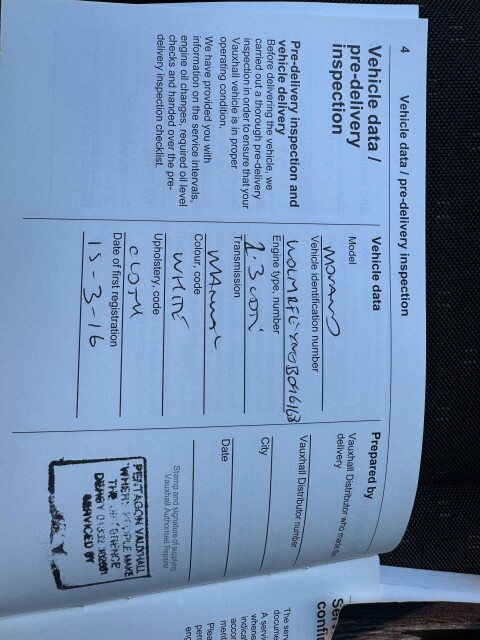 4 Vehicle data / pre-delivery inspection
Vehicle data /
pre-delivery
inspection
Pre-delivery inspection and
vehicle delivery
Before delivering the vehicle, we
carried out a thorough pre-delivery
inspection in order to ensure that your
Vauxhall vehicle is in proper
operating condition.
We have provided you with
information on the service intervals,
engine oil changes, required oil level
checks and handed over the pre-
delivery inspection checklist.
Vehicle data
Model
MOVANO
Vehicle identification number
Engine type, number
2.3 CDTI
Transmission
MANUAL
Colour, code
WHITE
Upholstery, code
CLOTH
Date of first registration
15-3-16
Prepared by
Vauxhall Distributor who made
delivery
Vauxhall Distributor number
City
Date
Stamp and signature of supplying
Vauxhall Authorised Repairer
PENTAGON VAUXHALL
WHERE PEOPLE MAKE
THE DIFFERENCE
DERBY 01332
SERVICED BY
The
docume
A servi
whene
indica
acco
ment
Plea
per
eng